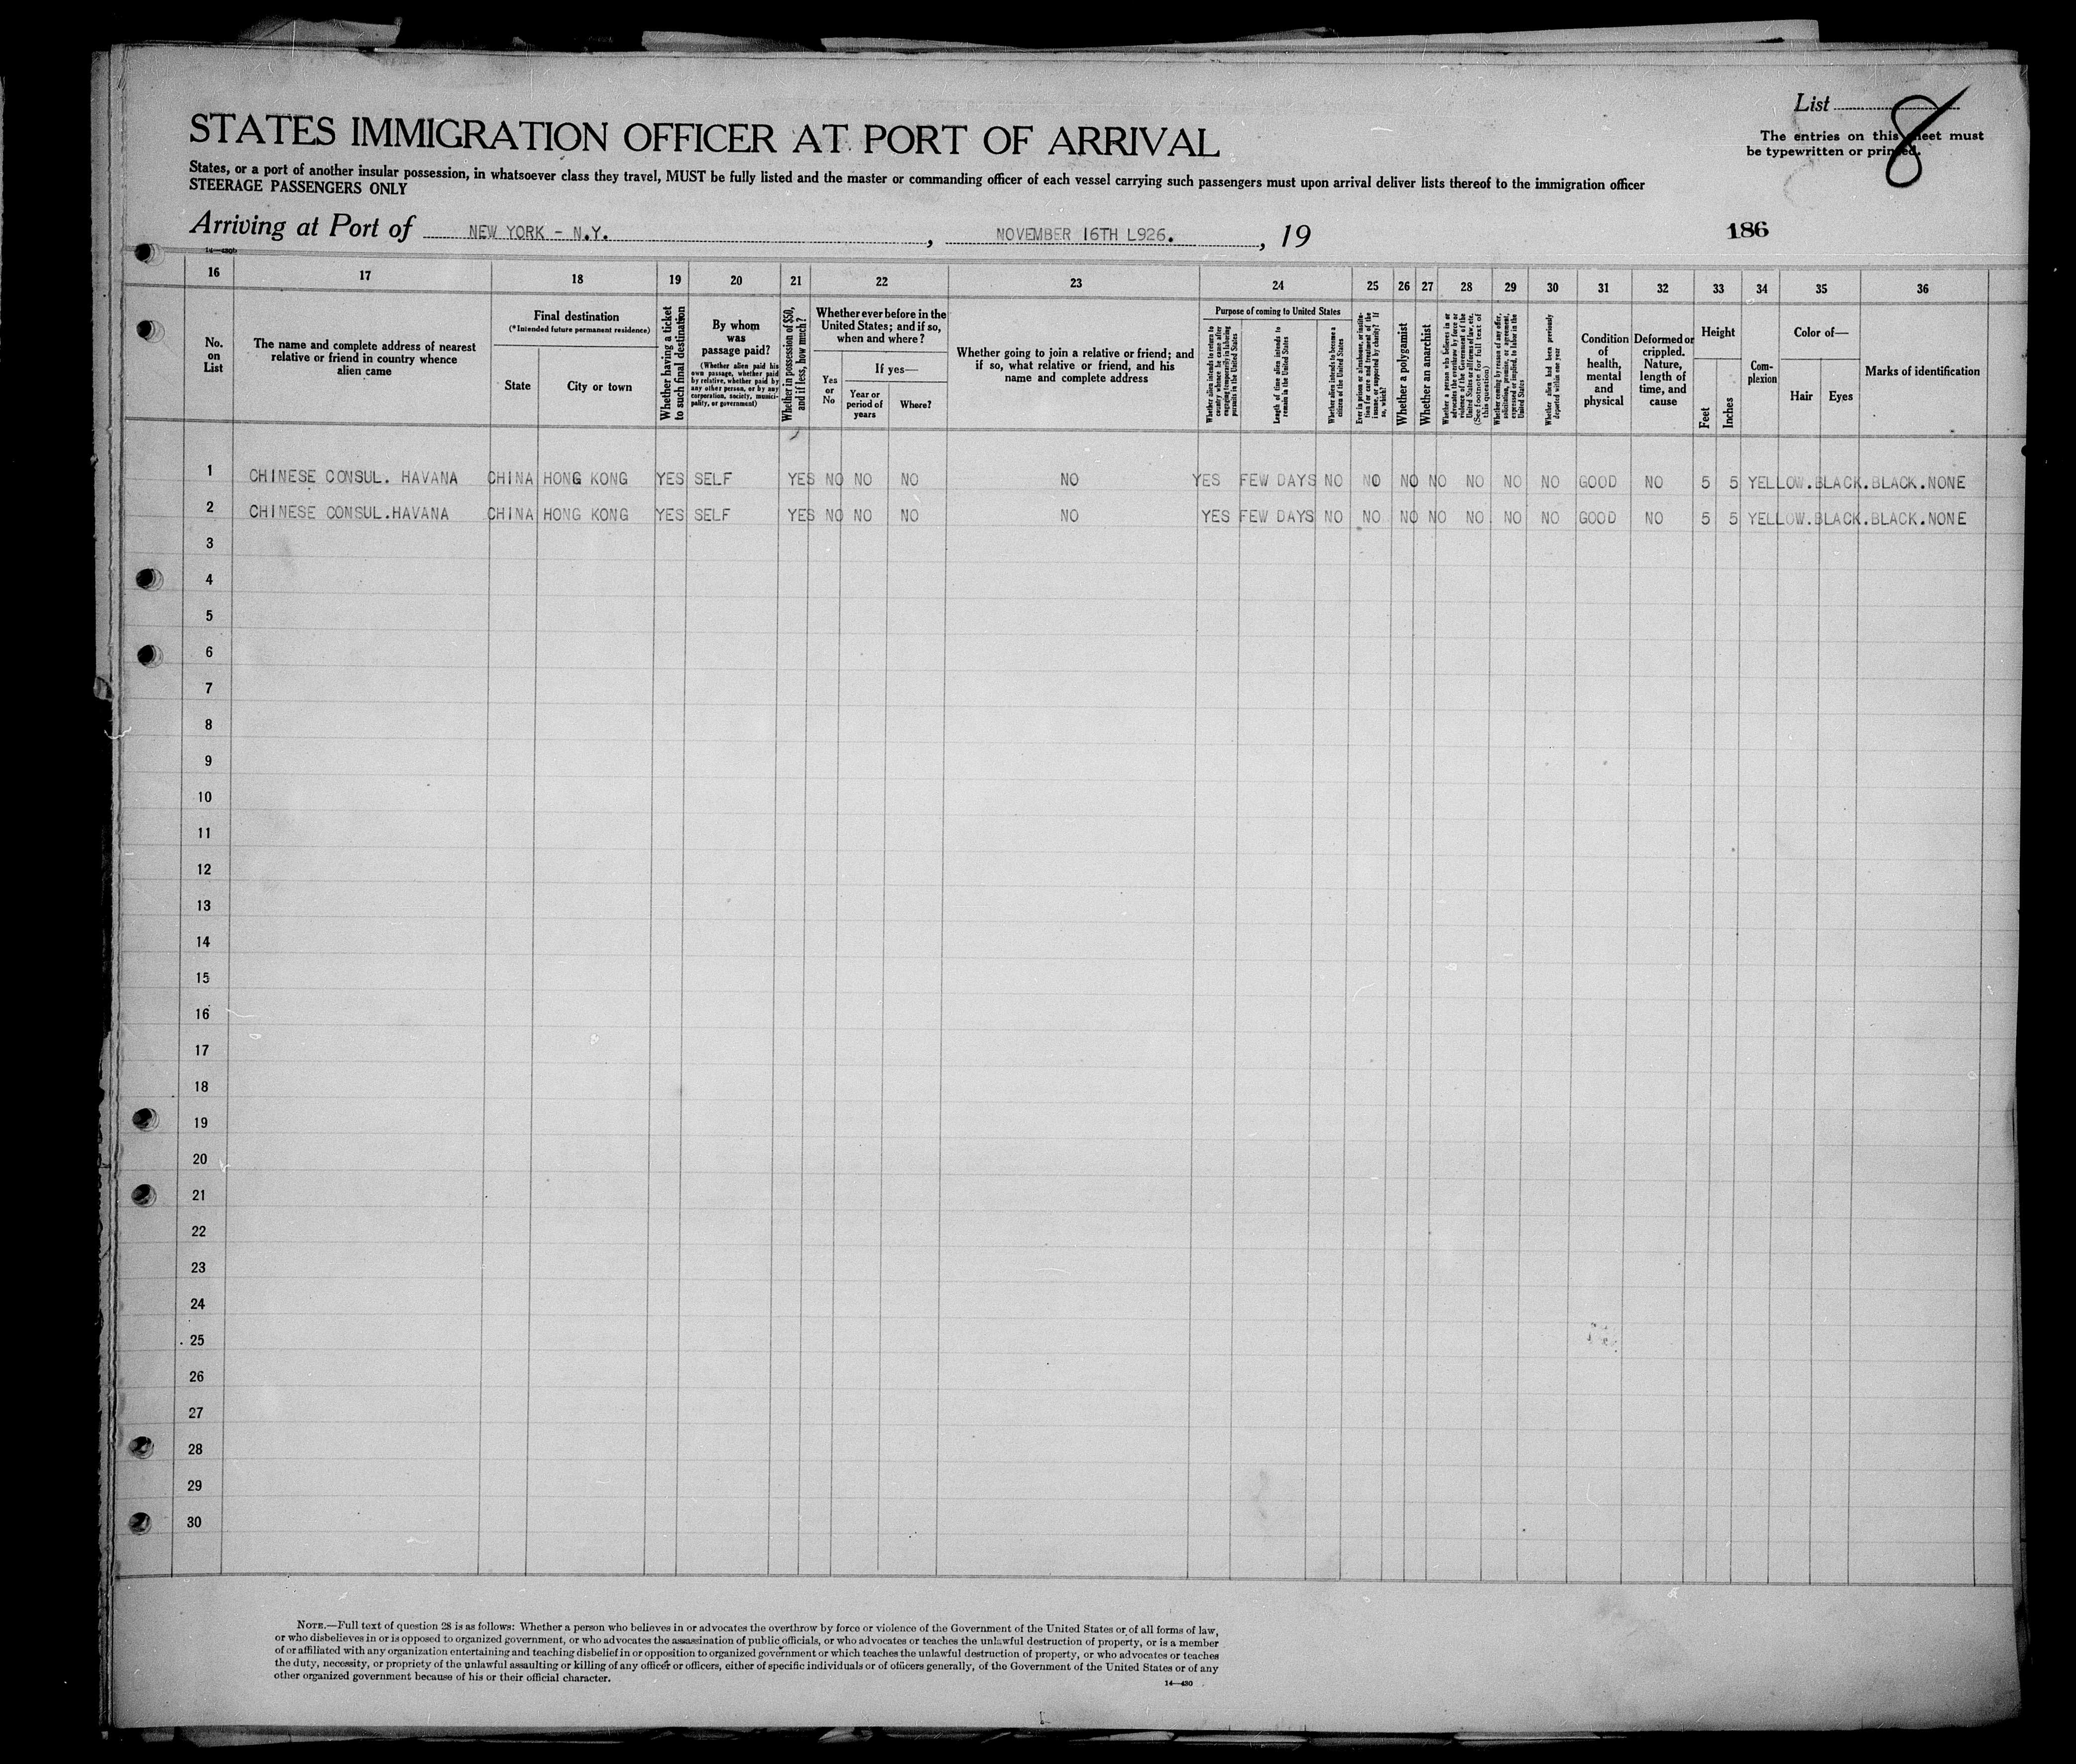 List 8
The entries on this sheet must
be typewritten or printed.
STATES IMMIGRATION OFFICER AT PORT OF ARRIVAL
States, or a port of another insular possession, in whatsoever class they travel, MUST be fully listed and the master or commanding officer of each vessel carrying such passengers must upon arrival deliver lists thereof to the immigration officer
STEERAGE PASSENGERS ONLY
Arriving at Port of NEW YORK - N.Y. , NOVEMBER 16TH L926. , 19
186
14—430b
16 17 18 19 20 21 22 23 24 25 26 27 28 29 30 31 32 33 34 35 36
No.
on
List
The name and complete address of nearest
relative or friend in country whence
alien came
Final destination
(*Intended future permanent residence)
State
City or town
Whether having a ticket
to such final destination
By whom
was
passage paid?
(Whether alien paid his
own passage, whether paid
by relative, whether paid by
any other person, or by any
corporation, society, munici-
pality, or government)
Whether in possession of $50,
and if less, how much?
Whether ever before in the
United States; and if so,
when and where?
Yes
or
No
If yes—
Year or
period of
years
Where?
Whether going to join a relative or friend; and
if so, what relative or friend, and his
name and complete address
Purpose of coming to United States
Whether alien intends to return to
country whence he came after
engaging temporarily in laboring
pursuits in the United States
Length of time alien intends to
remain in the United States
Whether alien intends to become a
citizen of the United States
Ever in prison or almshouse, or institu-
tion for care and treatment of the
insane, or supported by charity? If
so, which?
Whether a polygamist
Whether an anarchist
Whether a person who believes in or
advocates the overthrow by force or
violence of the Government of the
United States or all forms of law, etc.
(See footnote for full text of
this question)
Whether coming by reason of any offer,
solicitation, promise, or agreement,
expressed or implied, to labor in the
United States
Whether alien had been previously
deported within one year
Condition
of
health,
mental
and
physical
Deformed or
crippled.
Nature,
length of
time, and
cause
Height
Feet
Inches
Com-
plexion
Color of—
Hair
Eyes
Marks of identification
1 CHINESE CONSUL. HAVANA CHINA HONG KONG YES SELF YES NO NO NO NO YES FEW DAYS NO NO NO NO NO NO NO GOOD NO 5 5 YELLOW.BLACK.BLACK.NONE
2 CHINESE CONSUL.HAVANA CHINA HONG KONG YES SELF YES NO NO NO NO YES FEW DAYS NO NO NO NO NO NO NO GOOD NO 5 5 YELLOW.BLACK.BLACK.NONE
3
4
5
6
7
8
9
10
11
12
13
14
15
16
17
18
19
20
21
22
23
24
25
26
27
28
29
30
NOTE.—Full text of question 28 is as follows: Whether a person who believes in or advocates the overthrow by force or violence of the Government of the United States or of all forms of law,
or who disbelieves in or is opposed to organized government, or who advocates the assassination of public officials, or who advocates or teaches the unlawful destruction of property, or is a member
of or affiliated with any organization entertaining and teaching disbelief in or opposition to organized government or which teaches the unlawful destruction of property, or who advocates or teaches
the duty, necessity, or propriety of the unlawful assaulting or killing of any officer or officers, either of specific individuals or of officers generally, of the Government of the United States or of any
other organized government because of his or their official character.
14—430